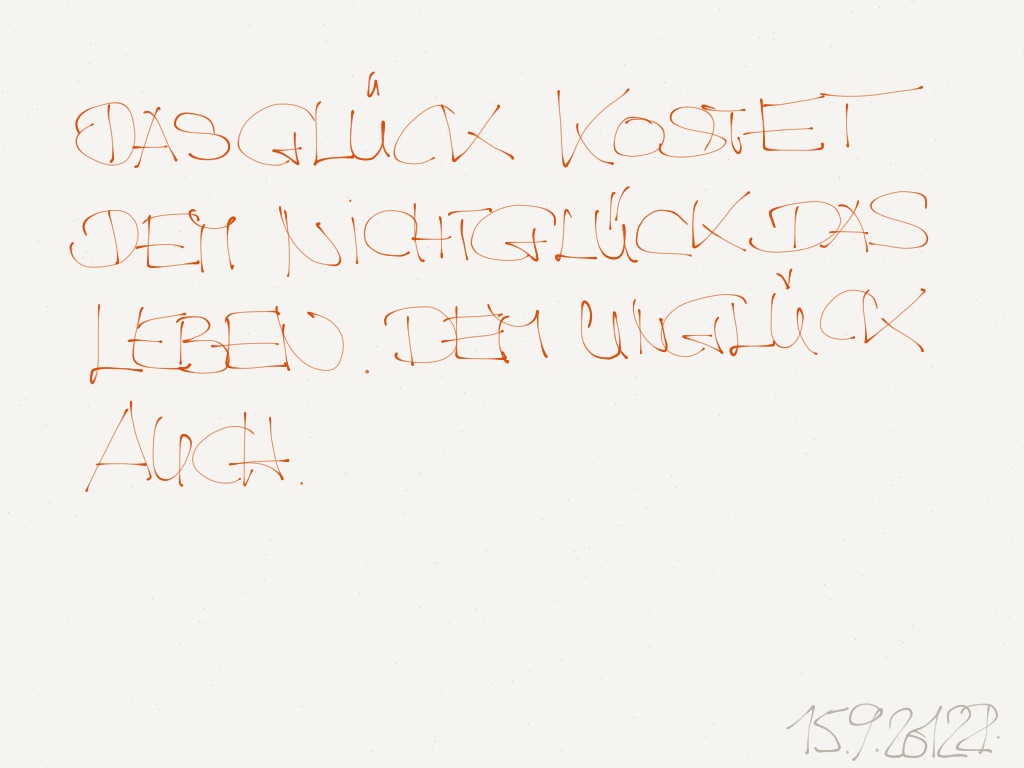 DAS GLÜCK KOSTET
DEM NICHTGLÜCK DAS
LEBEN. DEM UNGLÜCK
AUCH.